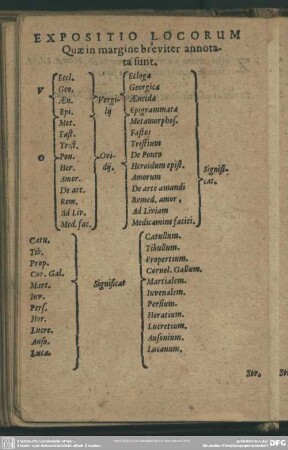 EXPOSITIO LOCORUM
Quæ in margine breviter annota-
ta sunt.
Ecl. Ecloga
Geo. Georgica
V Æn. Vergi- Æneida
Epi. lij Epigrammata
Met. Metamorphos.
Fast. Fastos
Trist. Tristium
O Pon. Ovi- De Ponto Signifi-
Her. dij. Heroidum epist. cat.
Amor. Amorum
De art. De arte amandi
Rem. Remed. amor.
Ad Liv. Ad Liviam
Med. fac. Medicamine faciei.
Catu. Catullum.
Tib. Tibullum.
Prop. Propertium.
Cor. Gal. Cornel. Gallum.
Mart. Significat Martialem.
Iuv. Iuvenalem.
Pers. Persium.
Hor. Horatium.
Lucre. Lucretium.
Auso. Ausonium.
Luca. Lucanum.
Stro
DFG